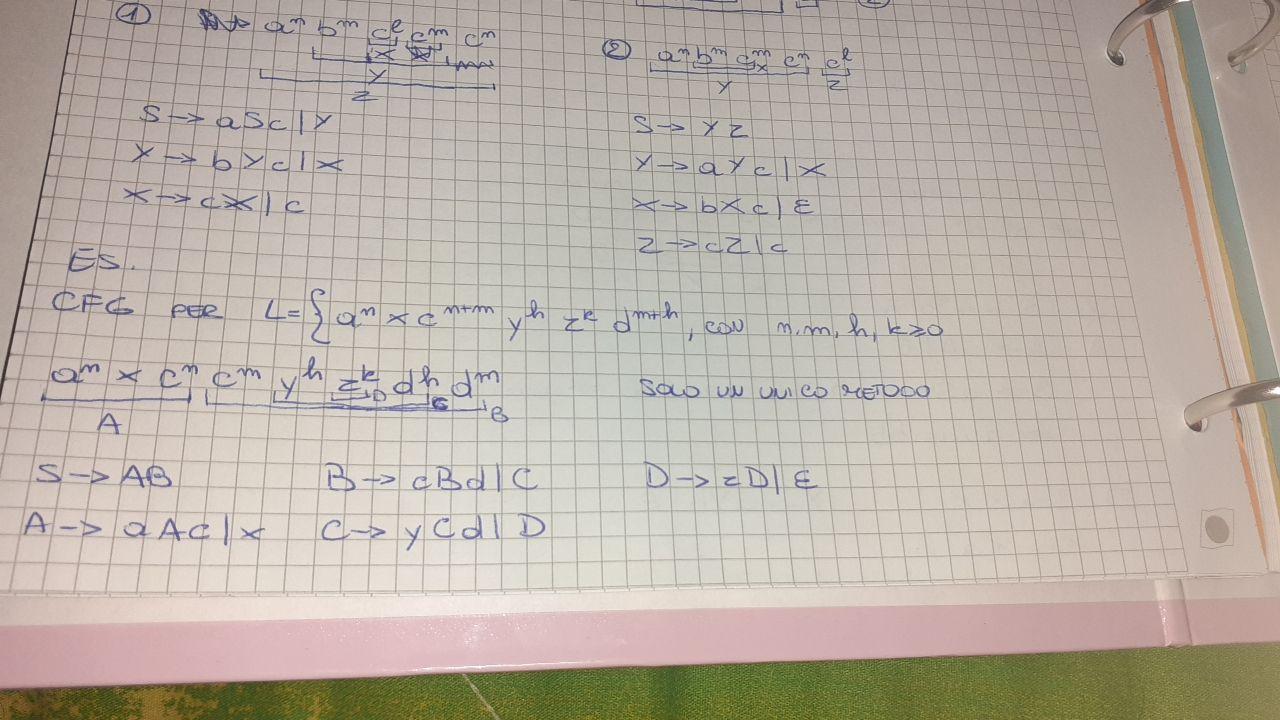 ① aⁿ bᵐ cˡ cᵐ cⁿ
X
Y
Z
S → aSc | Y
Y → bYc | X
X → cX | c
② aⁿ bᵐ cᵐ cⁿ cˡ
X
Y Z
S → YZ
Y → aYc | X
X → bXc | ε
Z → cZ | c
ES.
CFG PER L = { aⁿ x cⁿ⁺ᵐ yʰ zᵏ dᵐ⁺ʰ, CON n, m, h, k ≥ 0
aⁿ x cⁿ cᵐ yʰ zᵏ dʰ dᵐ SOLO UN UNICO METODO
A D C B
S → AB B → cBd | C D → zD | ε
A → aAc | x C → yCd | D